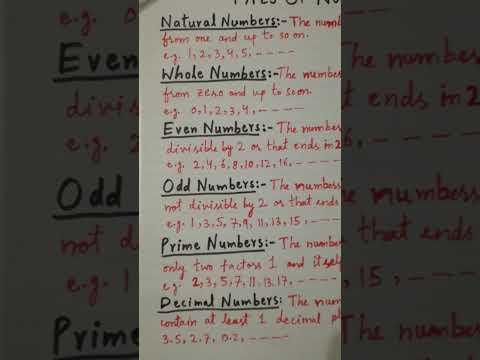 Natural Numbers:- The numb
from one and up to so on.
e.g. 1, 2, 3, 4, 5, - - - -
Whole Numbers:- The number
from zero and up to soon.
e.g. 0, 1, 2, 3, 4, - - - -
Even Numbers:- The number
divisible by 2 or that ends in 2
e.g. 2, 4, 6, 8, 10, 12, 16, - - - -
Odd Numbers:- The numbers
not divisible by 2 or that ends
e.g. 1, 3, 5, 7, 9, 11, 13, 15, - - - -
Prime Numbers:- The number
only two factors 1 and itself
e.g. 2, 3, 5, 7, 11, 13, 17, - - - -
Decimal Numbers: The num
contain at least 1 decimal pl
3.5, 2.7, 0.2, - - - -